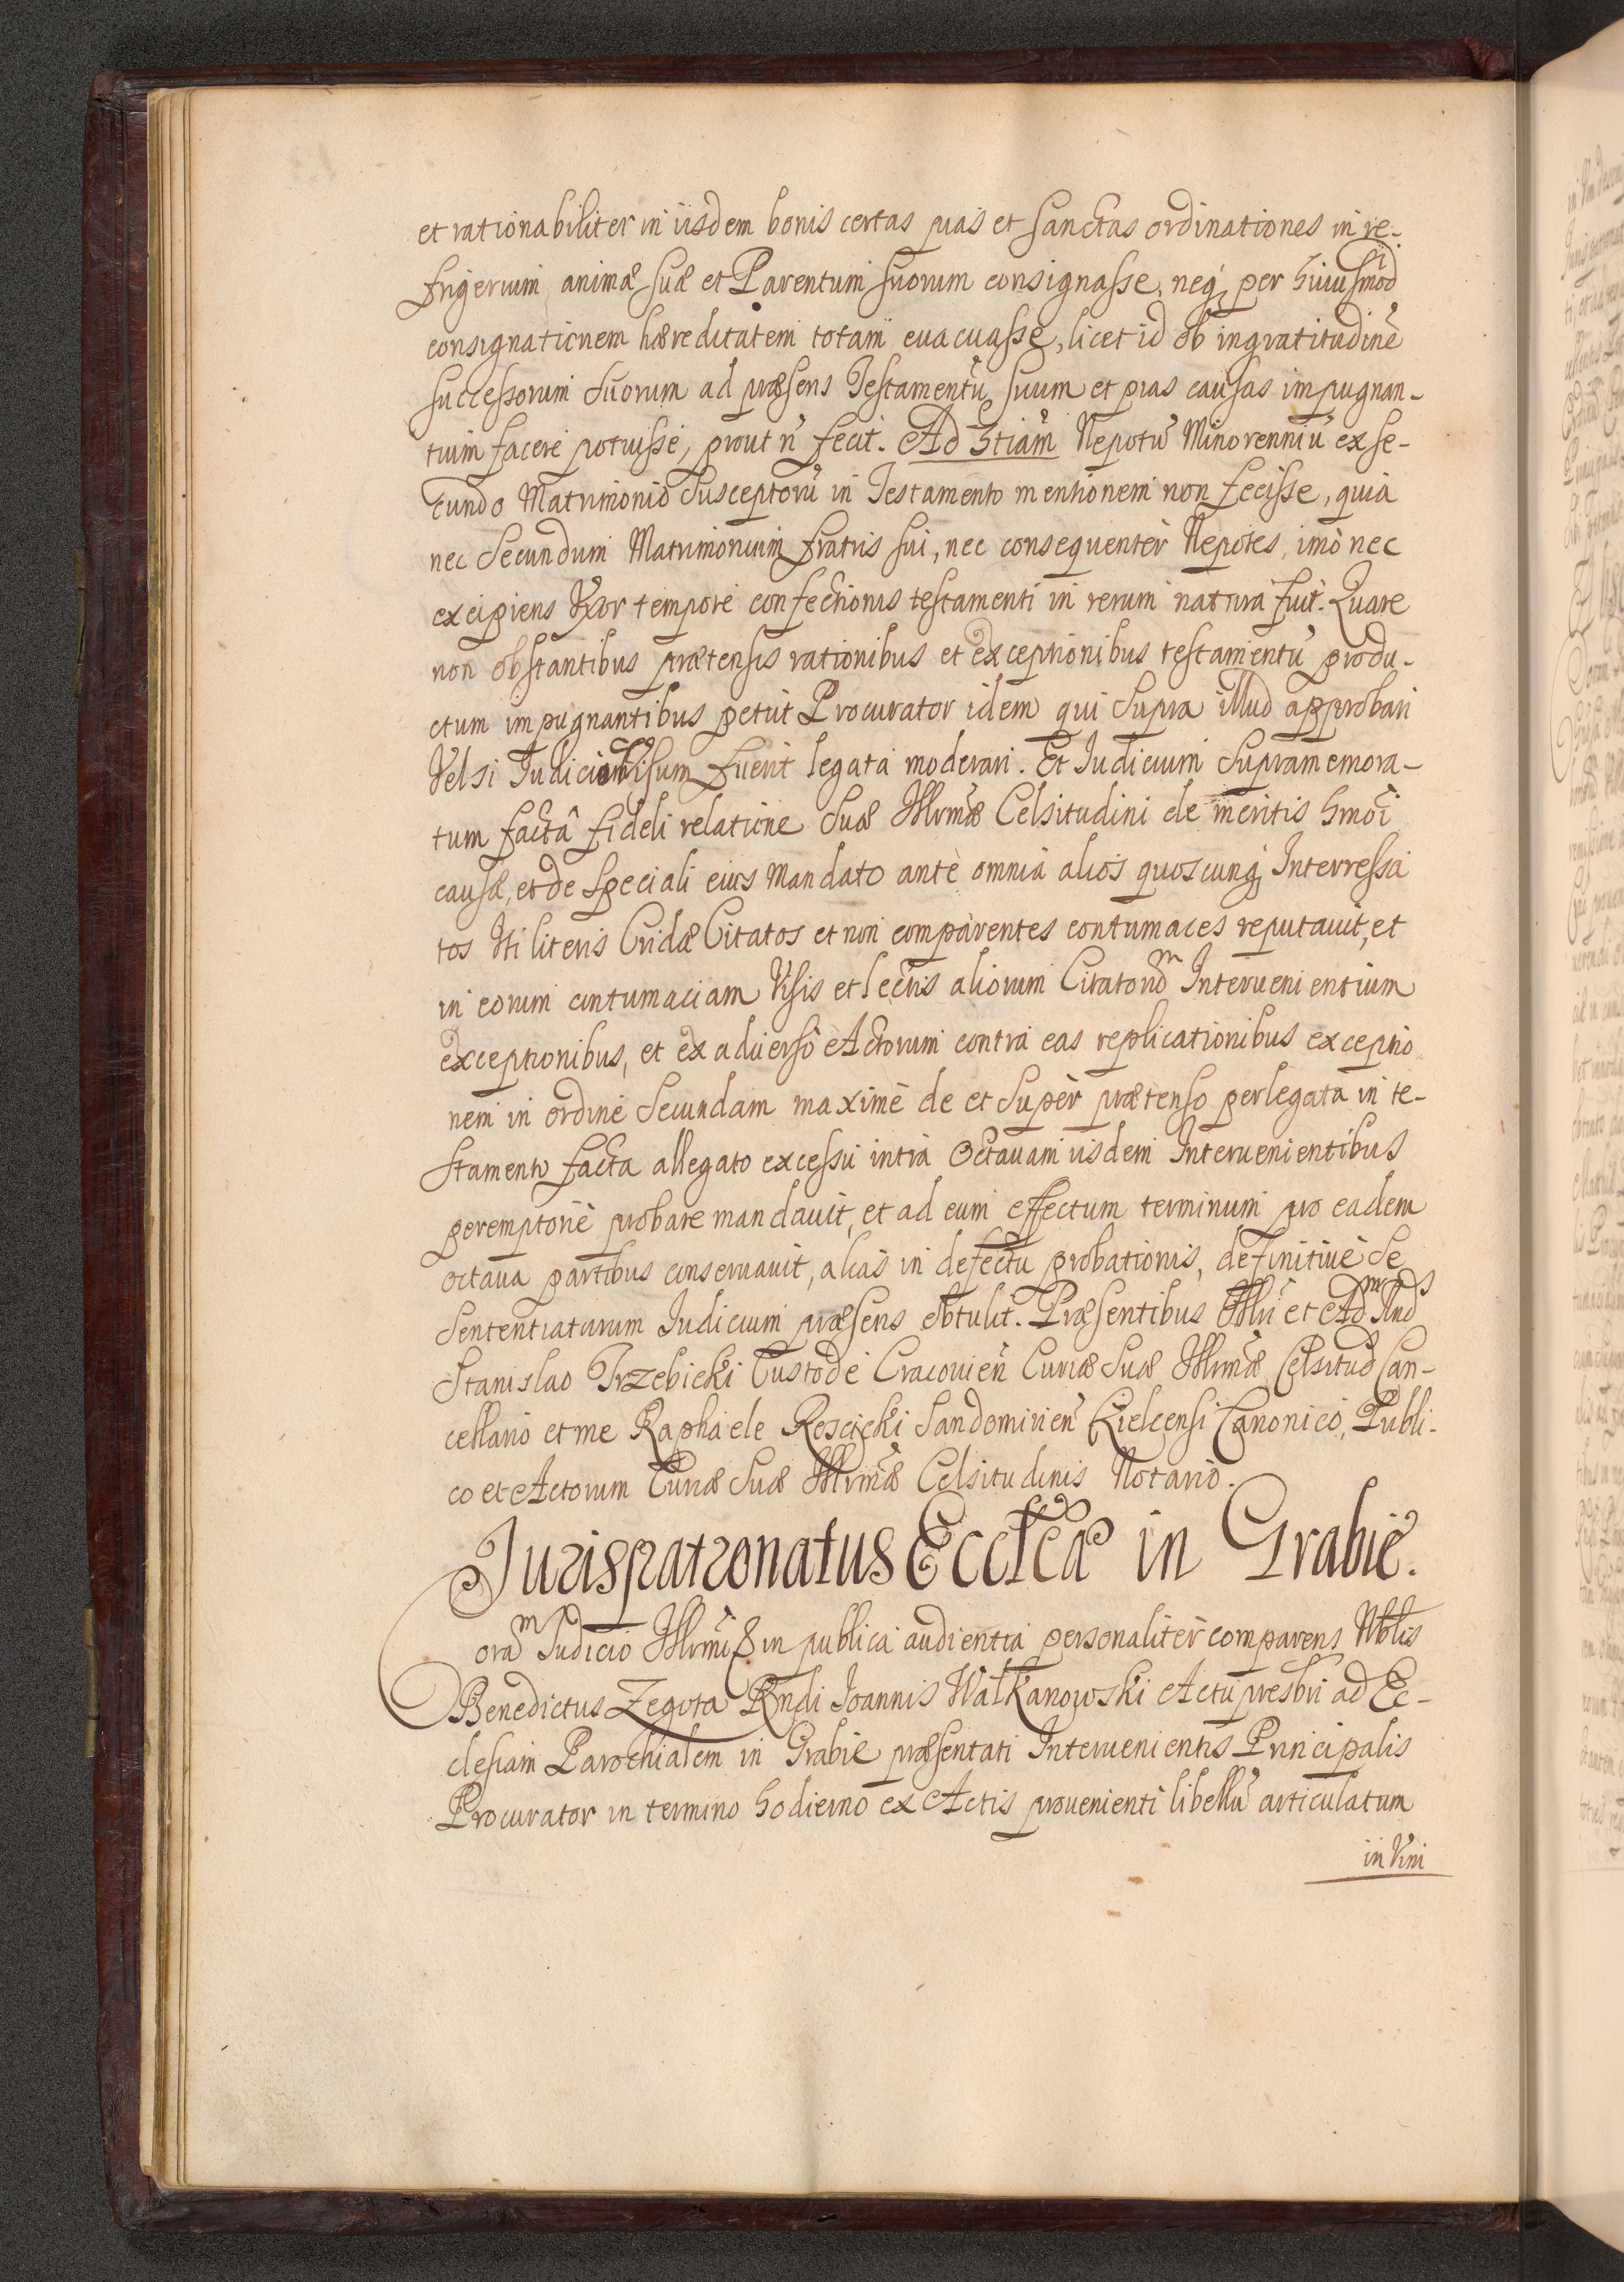 et rationabiliter in iisdem bonis certas pias et sanctas ordinationes in re-
frigerium animæ suæ et Parentum suorum consignasse, neq per huiusmod
consignationem hæreditatem totam euacuasse, licet id ob ingratitudinē
successorum suorum ad præsens Testamentū suum et pias causas impugnan-
tium facere potuisset, prout ñ fecit. Ad 3tiam Nepotū Minorenniū ex se-
cundo Matrimonio Susceptorū in Testamento mentionem non fecisse, quia
nec Secundum Matrimonium fratris sui, nec consequentèr Nepotes, imò nec
excipiens Vxor tempore confectionis testamenti in rerum natura fuit. Quare
non obstantibus prætensis rationibus et exceptionibus testamentū produ-
ctum impugnantibus petiit Procurator idem qui supra illud approbari
Vel si Iudicio Visum fuerit legata moderari. Et Iudicium Supramemora-
tum factâ fideli relatione Suæ Illrmæ Celsitudini de meritis hmoi
causæ, et de speciali eius Mandato ante omnia alios quoscunq Interressa
tos Iti literis Cridæ Citatos et non comparentes contumaces reputauit, et
in eorum contumaciam Visis et lectis aliorum Citatorum Interuenientium
exceptionibus, et ex aduerso Actorum contra eas replicationibus exceptio
nem in ordine Secundam maximè de et Supèr prætenso per legata in te-
stamento facta allegato excessu intra Octauam iisdem Interuenientibus
peremptoriè probare mandauit, et ad eum effectum terminum pro eadem
octaua partibus conseruauit, alias in defectu probationis, definitiuè se
Sententiaturum Iudicium præsens obtulit. Præsentibus Illri et Adm Rnds
Stanislao Trzebicki Custode Cracouien Curiæ Suæ Illrmæ Celsitud Can-
cellario et me Raphaele Roscicki Sandomirien Kielcensi Canonico, Publi-
co et Actorum Curiæ Suæ Illrmæ Celsitudinis Notario.
Jurispatronatus Ecclcæ in Grabie.
Coram Iudicio Illrmi & in publica audientia personalitèr comparens Nblis
Benedictus Zegota Rndi Ioannis Wałkanowski Actu presbri ad Ec-
clesiam Parochialem in Grabie præsentati Interuenientis Principalis
Procurator in termino hodierno ex Actis prouenienti libellū articulatum
in Vim